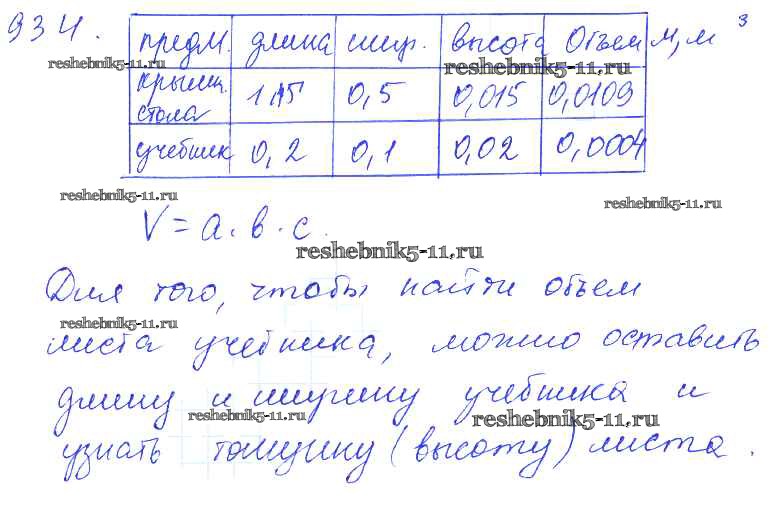 934.
предм. длина шир. высота Объем м, м³
reshebnik5-11.ru
reshebnik5-11.ru
крышк. стола 1,15 0,5 0,015 0,0109
учебник 0,2 0,1 0,02 0,0004
reshebnik5-11.ru
reshebnik5-11.ru
V = а·в·с.
reshebnik5-11.ru
Для того, чтобы найти объем
reshebnik5-11.ru
листа учебника, можно оставить
длину и ширину учебника и
reshebnik5-11.ru
reshebnik5-11.ru
узнать толщину (высоту) листа.